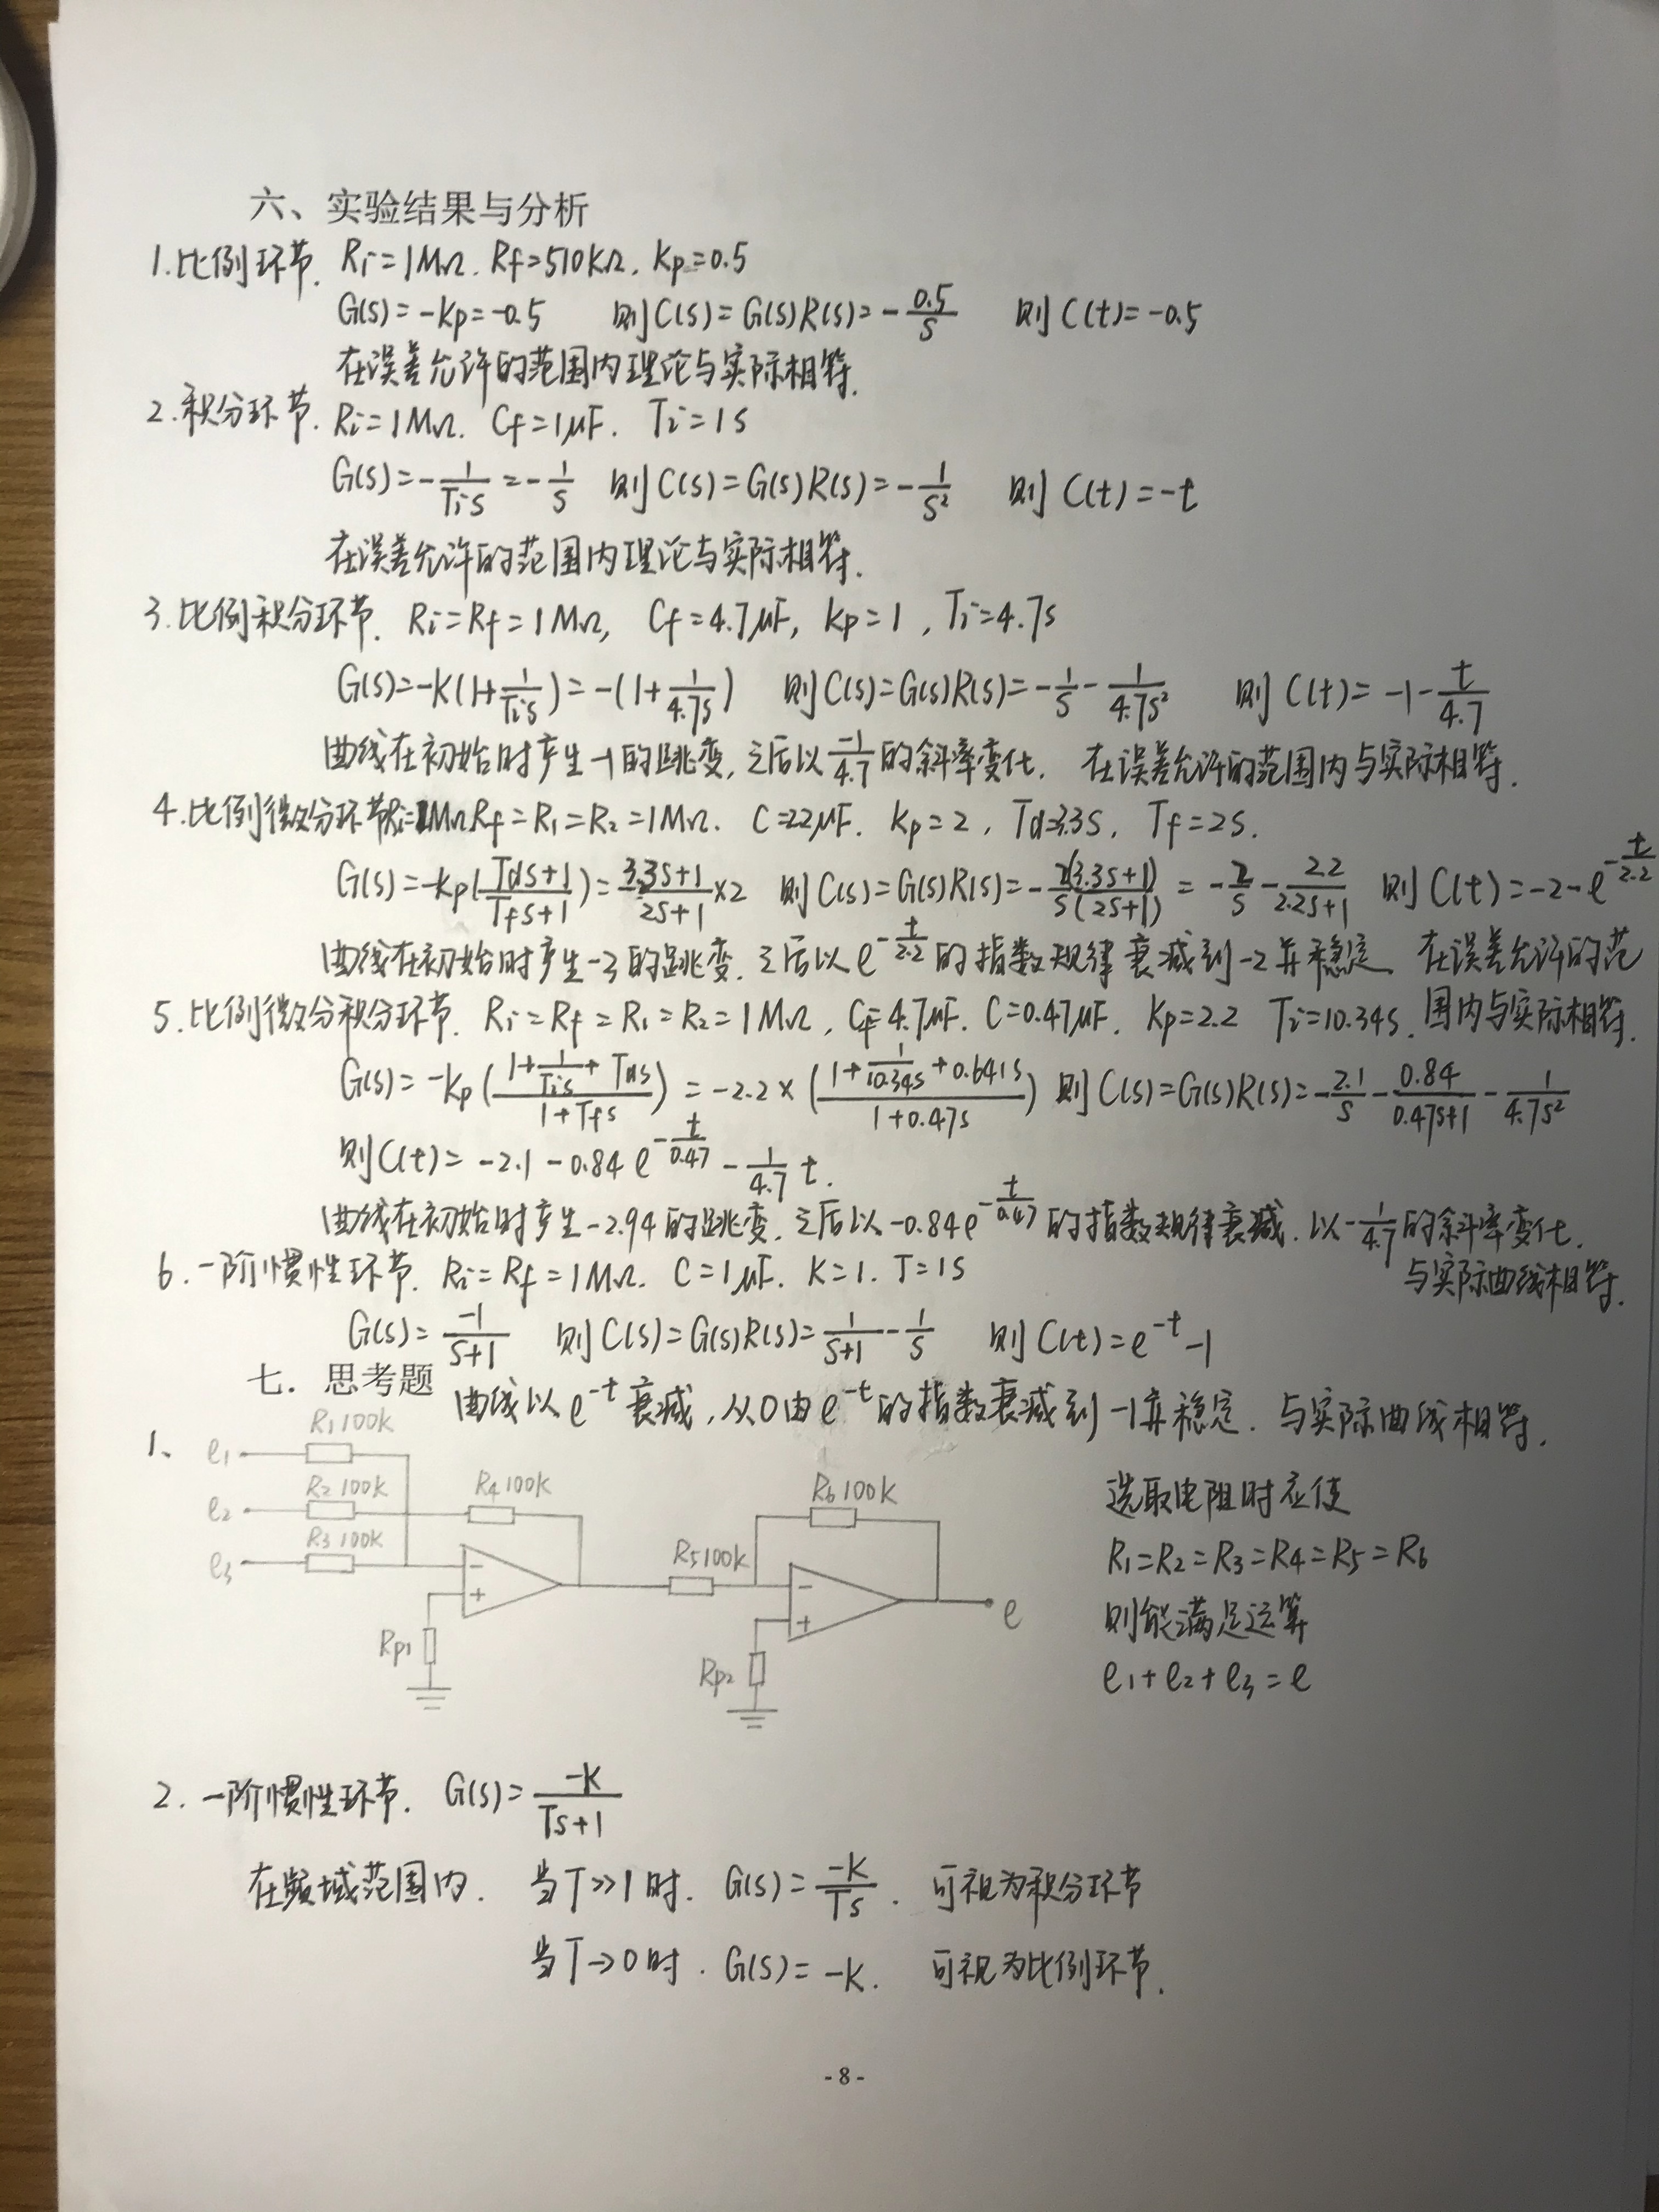 六、实验结果与分析
1.比例环节. Ri=1MΩ. Rf=510KΩ. Kp=0.5
G(s)=-Kp=-0.5 则C(s)=G(s)R(s)=-0.5/S 则C(t)=-0.5
在误差允许的范围内理论与实际相符.
2.积分环节. Ri=1MΩ. Cf=1μF. Ti=1S
G(s)=-1/TiS=-1/S 则C(s)=G(s)R(s)=-1/S² 则C(t)=-t
在误差允许的范围内理论与实际相符.
3.比例积分环节. Ri=Rf=1MΩ, Cf=4.7μF, Kp=1, Ti=4.7s
G(s)=-K(1+1/TiS)=-(1+1/4.7S) 则C(s)=G(s)R(s)=-1/S-1/4.7S² 则C(t)=-1-t/4.7
曲线在初始时产生-1的跳变,之后以-1/4.7的斜率变化. 在误差允许的范围内与实际相符.
4.比例微分环节Ri=1MΩRf=R1=R2=1MΩ. C=22μF. Kp=2, Td=3.3S, Tf=2S.
G(s)=-Kp(TdS+1/TfS+1)=3.3S+1/2S+1×2 则C(s)=G(s)R(s)=-2(3.3S+1)/S(2S+1)=-2/S-2.2/2.2S+1 则C(t)=-2-e^(-t/2.2)
曲线在初始时产生-3的跳变.之后以e^(-t/2.2)的指数规律衰减到-2并稳定 在误差允许的范
围内与实际相符.
5.比例微分积分环节. Ri=Rf=R1=R2=1MΩ, Cf=4.7μF. C=0.47μF. Kp=2.2 Ti=10.34s.
G(s)=-Kp(1+1/TiS+TdS/1+TfS)=-2.2×(1+1/10.34S+0.641S/1+0.47S) 则C(s)=G(s)R(s)=-2.1/S-0.84/0.47S+1-1/4.7S²
则C(t)=-2.1-0.84e^(-t/0.47)-1/4.7t.
曲线在初始时产生-2.94的跳变.之后以-0.84e^(-t/0.47)的指数规律衰减.以-1/4.7的斜率变化.
与实际曲线相符.
6.一阶惯性环节. Ri=Rf=1MΩ. C=1μF. K=1. T=1S
G(s)=-1/S+1 则C(s)=G(s)R(s)=1/S+1-1/S 则C(t)=e^(-t)-1
七. 思考题
曲线以e^(-t)衰减,从0由e^(-t)的指数衰减到-1并稳定. 与实际曲线相符.
1、
e1 R1 100K
e2 R2 100K
e3 R3 100K
R4 100K
R5 100K
R6 100K
-
+
-
+
Rp1
Rp2
e
选取电阻时应使
R1=R2=R3=R4=R5=R6
则能满足运算
e1+e2+e3=e
2. 一阶惯性环节. G(s)=-K/TS+1
在频域范围内. 当T>>1时. G(s)=-K/TS. 可视为积分环节
当T→0时. G(s)=-K. 可视为比例环节.
-8-